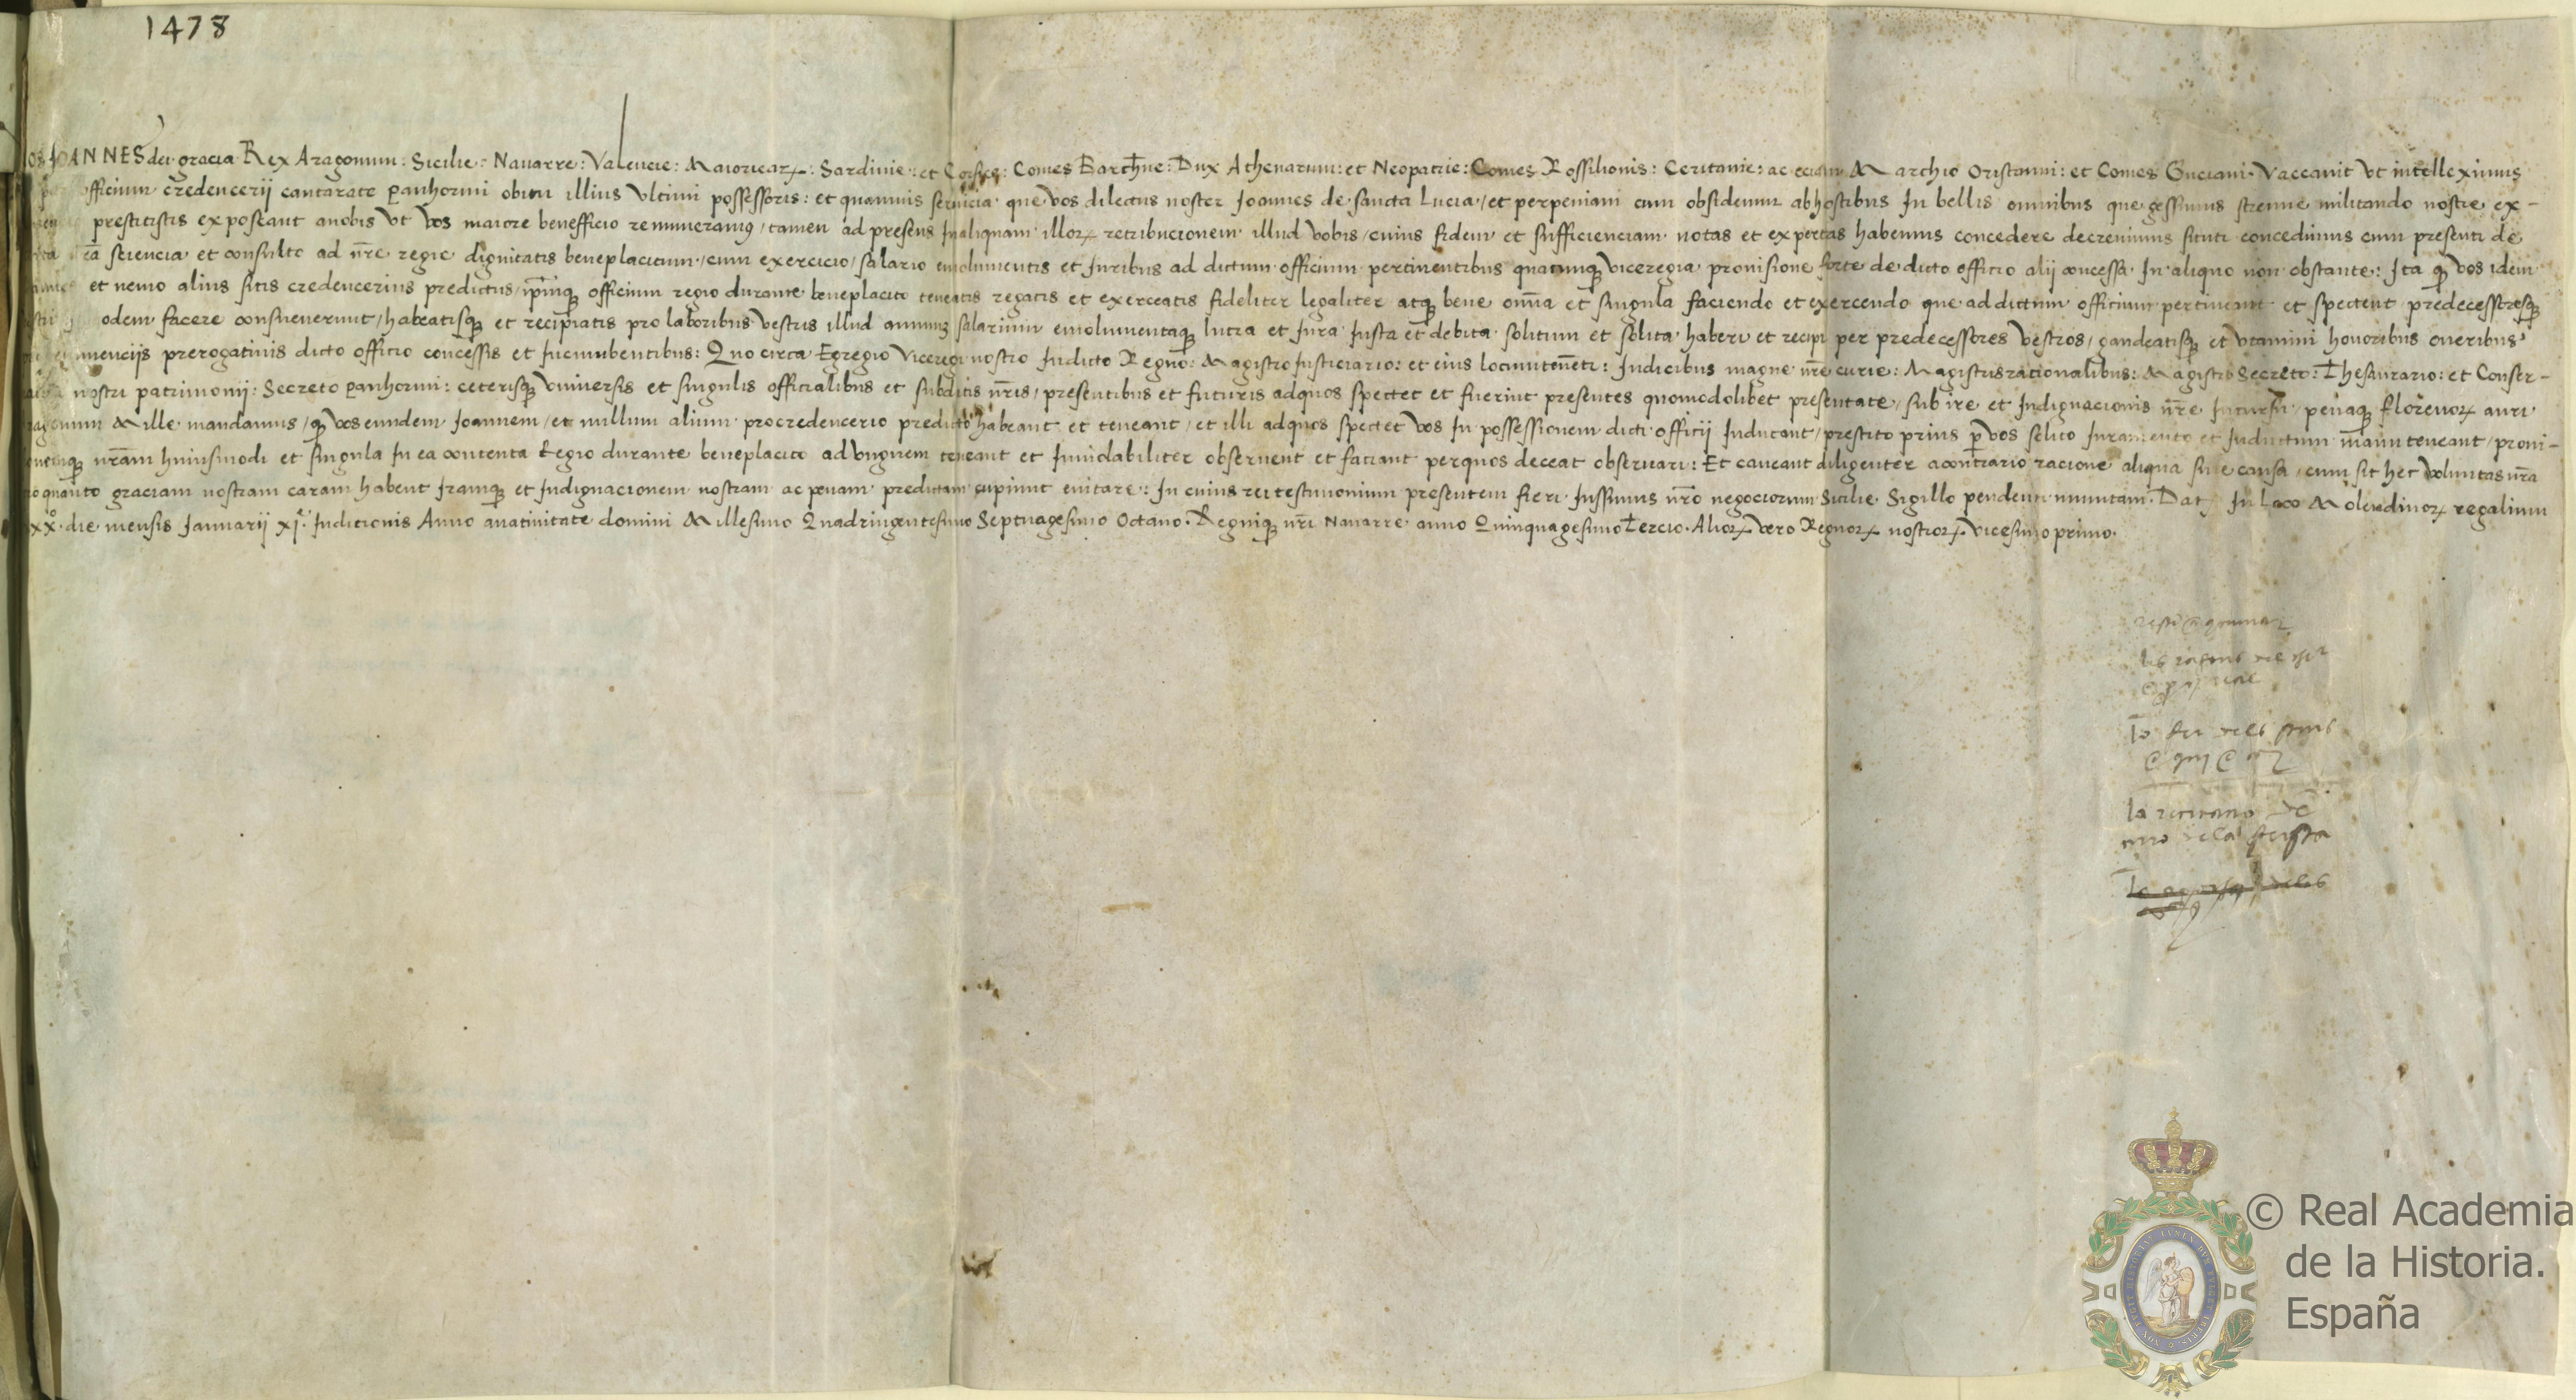 1478
IOANNES dei gracia Rex Aragonum: Sicilie: Nauarre: Valencie: Maioricarꝝ: Sardinie: et Corsice: Comes Barchn̄e: Dux Athenarum: et Neopatrie: Comes Rossilionis: Ceritanie: ac eciam Marchio Oristanni: et Comes Guciani. Vaccauit vt intelleximus
officium credencerij cantarate panhormi obitu illius vltimi possessoris: et quamuis seruicia que vos dilectus noster Joannes de sancta Lucia / et perpeniani cum obsidemur abhostibus In bellis omnibus que gessimus strenue militando nostre ex-
prestitistis exposcant anobis vt vos maiore benefficio remuneramus / tamen ad presens Inaliquam illorꝝ retribucionem illud vobis / cuius fidem et sufficienciam notas et expertas habemus concedere decreuimus sicuti concedimus cum presenti de
sciencia et consulto ad nr̄e regie dignitatis beneplacitum / cum exercicio / salario emolumentis et Iuribus ad dictum officium pertinentibus quacumqꝫ viceregia prouisione forte de dicto officio alij concessa In aliquo non obstante: Ita qꝫ vos idem
et nemo alius sitis credencerius predictus / ip̄mqꝫ officium regio durante beneplacito teneatis regatis et exerceatis fideliter legaliter atqꝫ bene omīa et singula faciendo et exercendo que ad dictum officium pertineant et spectent predecessoresqꝫ
odem facere consueuerunt / habeatisqꝫ et recipiatis pro laboribus vestris illud annuuꝫ salarium emolumentaqꝫ lucra et Iura Iusta et debita solitum et solita haberi et recipi per predecessores vestros / gaudeatisqꝫ et vtamini honoribus oneribus
prerogatiuis dicto officio concessis et Incumbentibus: Quo circa Egregio Viceregi nostro Indicto Regno: Magistro Iusticiario: et eius locumten̄eti: Iudicibus magne nr̄e curie: Magistrisracionalibus: Magistro Secreto: Thesaurario: et Conser-
nostri patrimonij: Secreto panhormi: ceterisqꝫ vniuersis et singulis officialibus et subditis nr̄is / presentibus et futuris adquos spectet et fuerint presentes quomodolibet presentate / sub ire et Indignacionis nr̄e Incursu / penaqꝫ florenorꝝ auri
Mille mandamus / qꝫ vos eundem Ioannem / et nullum alium procredencerio predicto habeant et teneant / et illi adquos spectet vos In possessionem dicti officij Inducant / prestito prius p vos solito Iuramento et Inductum man̄uteneant / proui-
nr̄am huiusmodi et singula In ea contenta Regio durante beneplacito advnguem teneant et Inuiolabiliter obseruent et faciant perquos deceat obseruari: Et caueant diligenter acontrario racione aliqua siue causa / cum sit hec voluntas nr̄a
quanto graciam nostram caram habent Iramqꝫ et Indignacionem nostram ac penam predictam cupiunt euitare: In cuius rei testimonium presentem fieri Iussimus nr̄o negociorum Sicilie Sigillo pendenti munitam. Datꝫ In Loco Molendinorꝝ regalium
xxº die mensis Ianuarij xjᵉ Indictionis Anno anatiuitate domini Millesimo Quadringentesimo Septuagesimo Octauo. Regniqꝫ nr̄i Nauarre anno Quinquagesimotercio. Aliorꝝ vero Regnorꝝ nostrorꝝ Vicesimo primo.
© Real Academia
de la Historia.
España